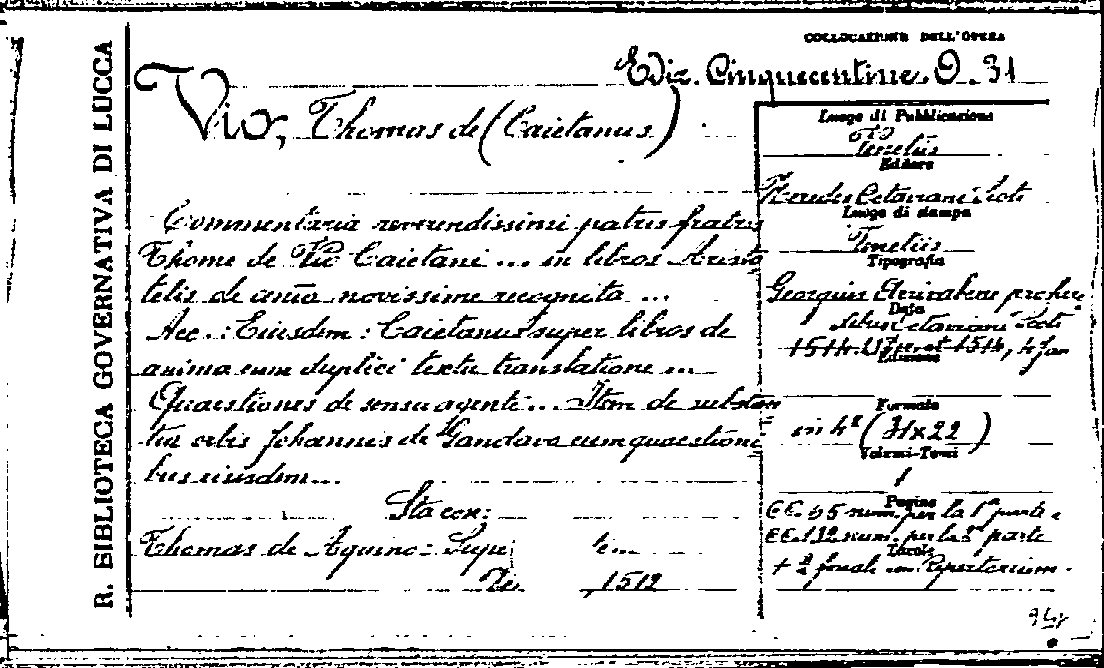 R. BIBLIOTECA GOVERNATIVA DI LUCCA
COLLOCAZIONE DELL'OPERA
Ediz. Cinquecentine. D. 31
Vio, Thomas de (Caietanus)
Commentaria reverendissimi patris fratris
Thome de Vio Caietani ... in libros Aristo
telis de aīa novissime recognita ...
Acc.: Eiusdem: Caietanus super libros de
anima cum duplici textu translatione ...
Quaestiones de sensu agente... Item de substan
tia orbis Johannis de Gandavo cum quaestioni
bus eiusdem...
Sta con:
Thomas de Aquino: Supe
1512
Luogo di Pubblicazione
Venetiis
Editore
Heredes Octaviani Scoti
Luogo di stampa
Venetiis
Tipografia
Georgius Arrivabene
Data
Octaviani Scoti
1514
Edizione
Formato
in 4º (31x22)
Volumi-Tomi
1
Pagine
CC. 65 num. per la 1ª parte e
CC. 132 num. per la 2ª parte
Tavole
+ 2 finali con Repertorium.